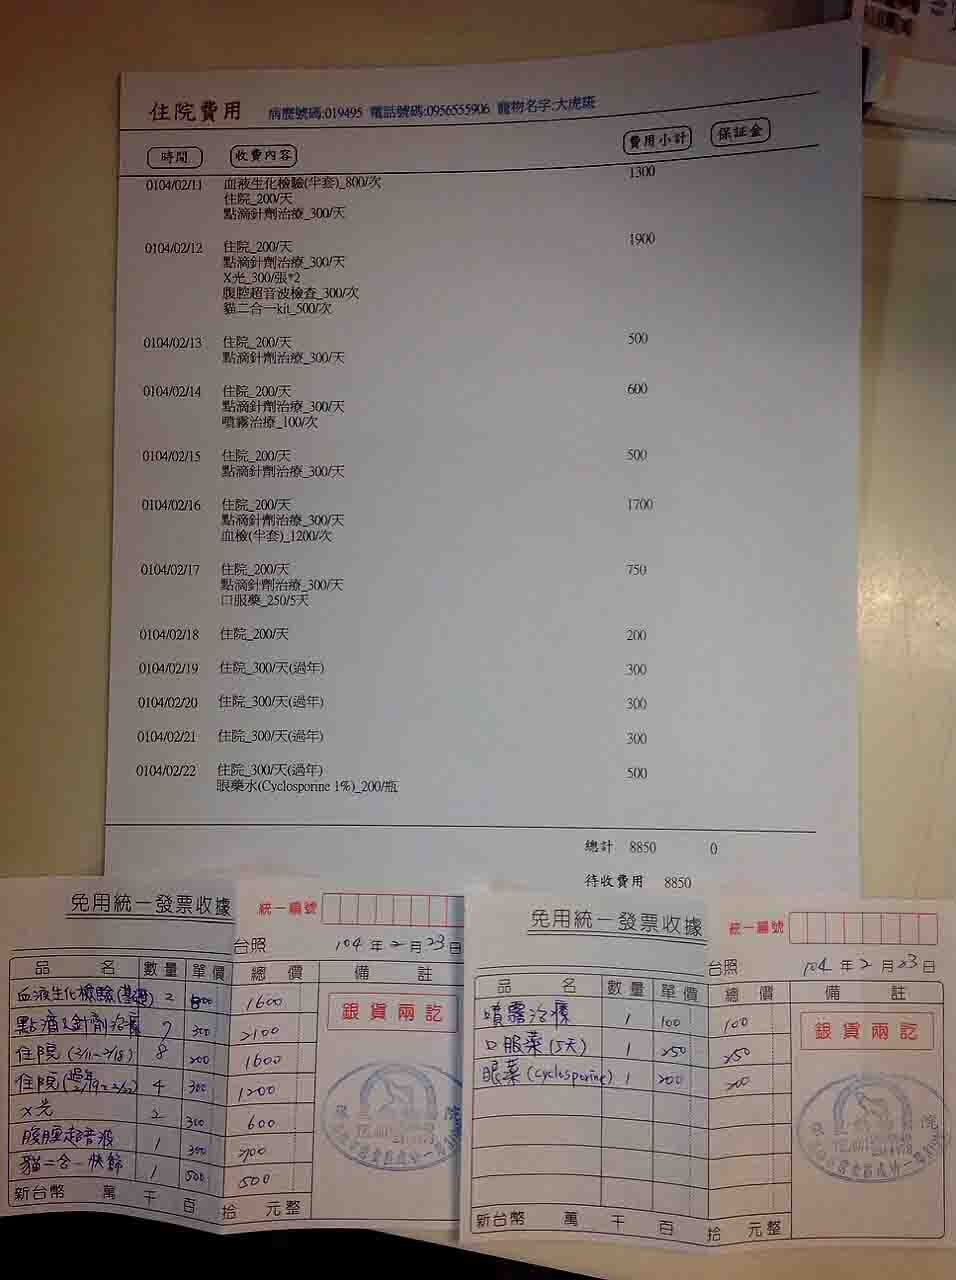 住院費用 病歷號碼:019495 電話號碼:0956555906 寵物名字:大虎斑
時間 收費內容 費用小計 保証金
0104/02/11 血液生化檢驗(半套)_800/次 1300
住院_200/天
點滴針劑治療_300/天
0104/02/12 住院_200/天 1900
點滴針劑治療_300/天
X光_300/張*2
腹腔超音波檢查_300/次
貓二合一kit_500/次
0104/02/13 住院_200/天 500
點滴針劑治療_300/天
0104/02/14 住院_200/天 600
點滴針劑治療_300/天
噴霧治療_100/次
0104/02/15 住院_200/天 500
點滴針劑治療_300/天
0104/02/16 住院_200/天 1700
點滴針劑治療_300/天
血檢(半套)_1200/次
0104/02/17 住院_200/天 750
點滴針劑治療_300/天
口服藥_250/5天
0104/02/18 住院_200/天 200
0104/02/19 住院_300/天(過年) 300
0104/02/20 住院_300/天(過年) 300
0104/02/21 住院_300/天(過年) 300
0104/02/22 住院_300/天(過年) 500
眼藥水(Cyclosporine 1%)_200/瓶
總計 8850 0
待收費用 8850
免用統一發票收據 統一編號
台照 104年2月23日
品名 數量 單價 總價 備註
血液生化檢驗 2 800 1600
點滴&針劑治療 7 300 2100
住院(2/11~2/18) 8 200 1600
住院(過年 2/19~2/22) 4 300 1200
X光 2 300 600
腹腔超音波 1 300
貓二合一快篩 1 500 500
銀貨兩訖
新台幣 萬 千 百 拾 元整
免用統一發票收據 統一編號
台照 104年2月23日
品名 數量 單價 總價 備註
噴霧治療 1 100 100
口服藥(5天) 1 250 250
眼藥(cyclosporine) 1 200 200
銀貨兩訖
新台幣 萬 千 百 拾 元整